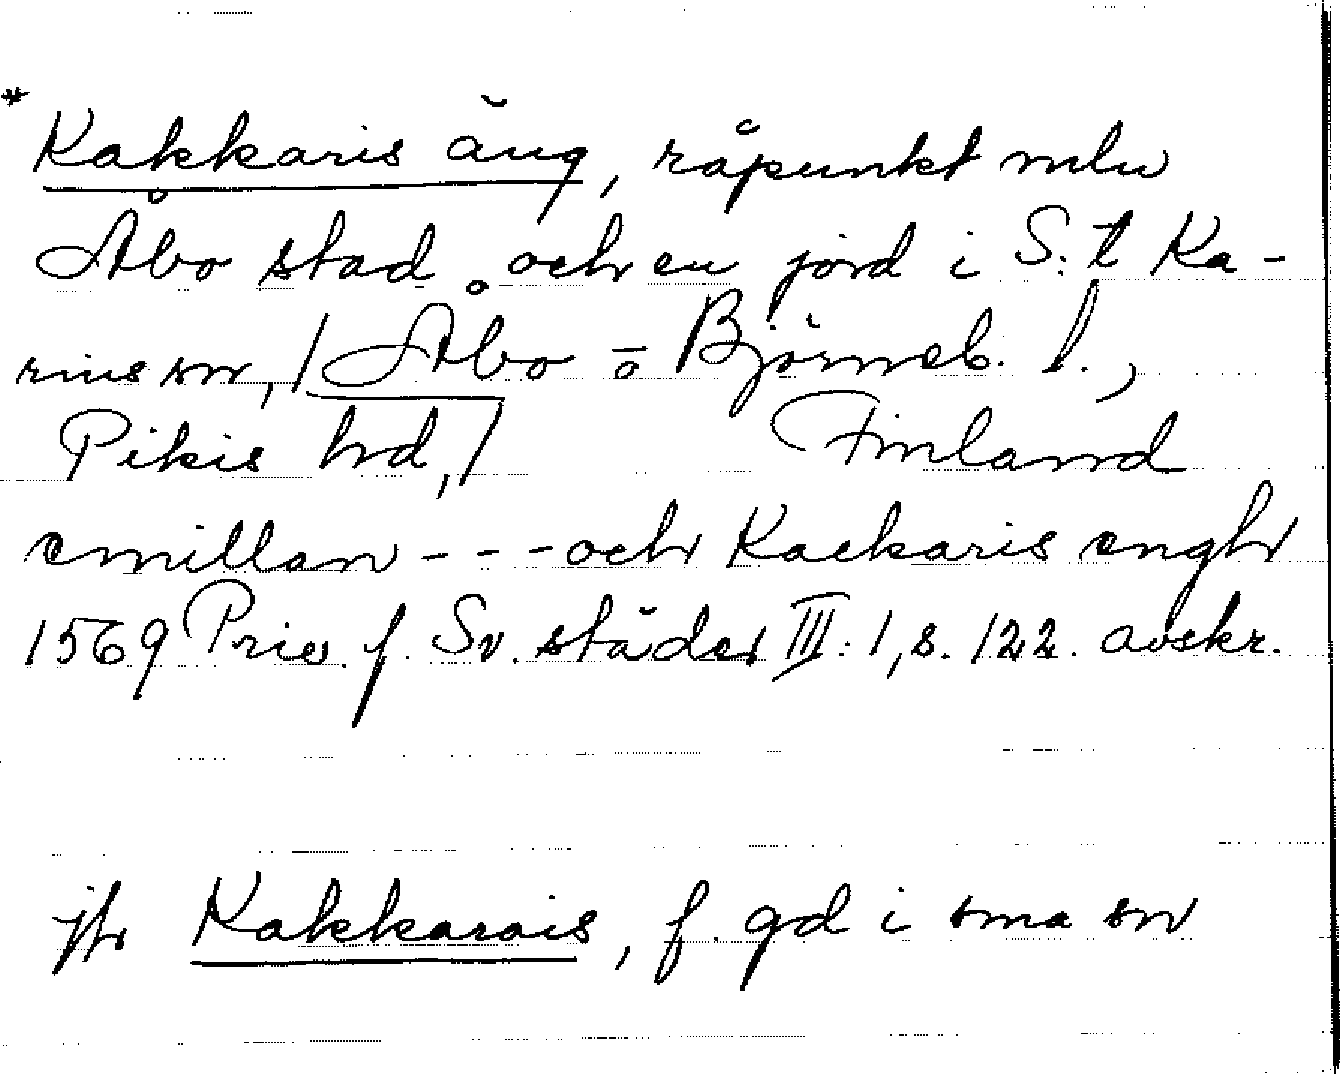 * Kakkaris äng, råpunkt mlw
Åbo stad och en jord i S:t Ka-
rins sn, / Åbo o Björneb. l.,
Pikis hrd, / Finland
emillan - - - och Kackaris engh
1569 Priv. f. Sv. städer III: 1, s. 122. avskr.
jfr Kakkarais, f. gd i sma sn